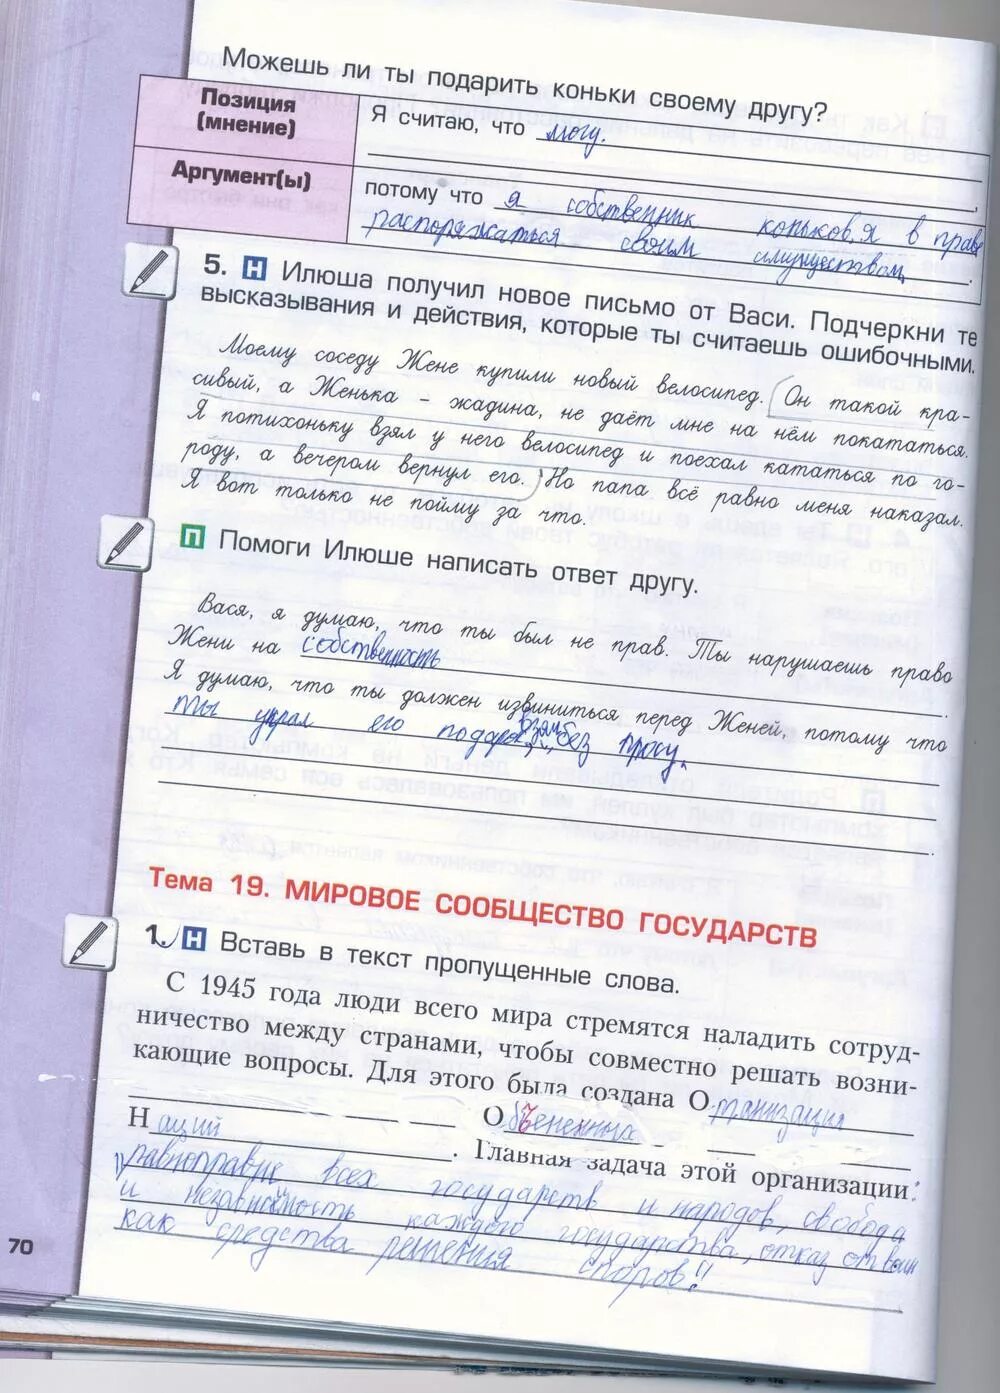 Можешь ли ты подарить коньки своему другу?
Позиция
(мнение)
Я считаю, что могу.
Аргумент(ы)
потому что я собственник коньков, я в праве
распоряжаться своим имуществом.
5. Н Илюша получил новое письмо от Васи. Подчеркни те
высказывания и действия, которые ты считаешь ошибочными.
Моему соседу Жене купили новый велосипед. Он такой кра-
сивый, а Женька – жадина, не даёт мне на нём покататься.
Я потихоньку взял у него велосипед и поехал кататься по го-
роду, а вечером вернул его. Но папа всё равно меня наказал.
Я вот только не пойму за что.
П Помоги Илюше написать ответ другу.
Вася, я думаю, что ты был не прав. Ты нарушаешь право
Жени на собственность
Я думаю, что ты должен извиниться перед Женей, потому что
ты украл его подарок, взял без просу.
Тема 19. МИРОВОЕ СООБЩЕСТВО ГОСУДАРСТВ
1. Н Вставь в текст пропущенные слова.
С 1945 года люди всего мира стремятся наладить сотруд-
ничество между странами, чтобы совместно решать возни-
кающие вопросы. Для этого была создана Организация
Объененных
Наций. Главная задача этой организации:
равноправие всех государств и народов, свобода
и независимость каждого государства, отказ от воин
как средства решения споров!
70